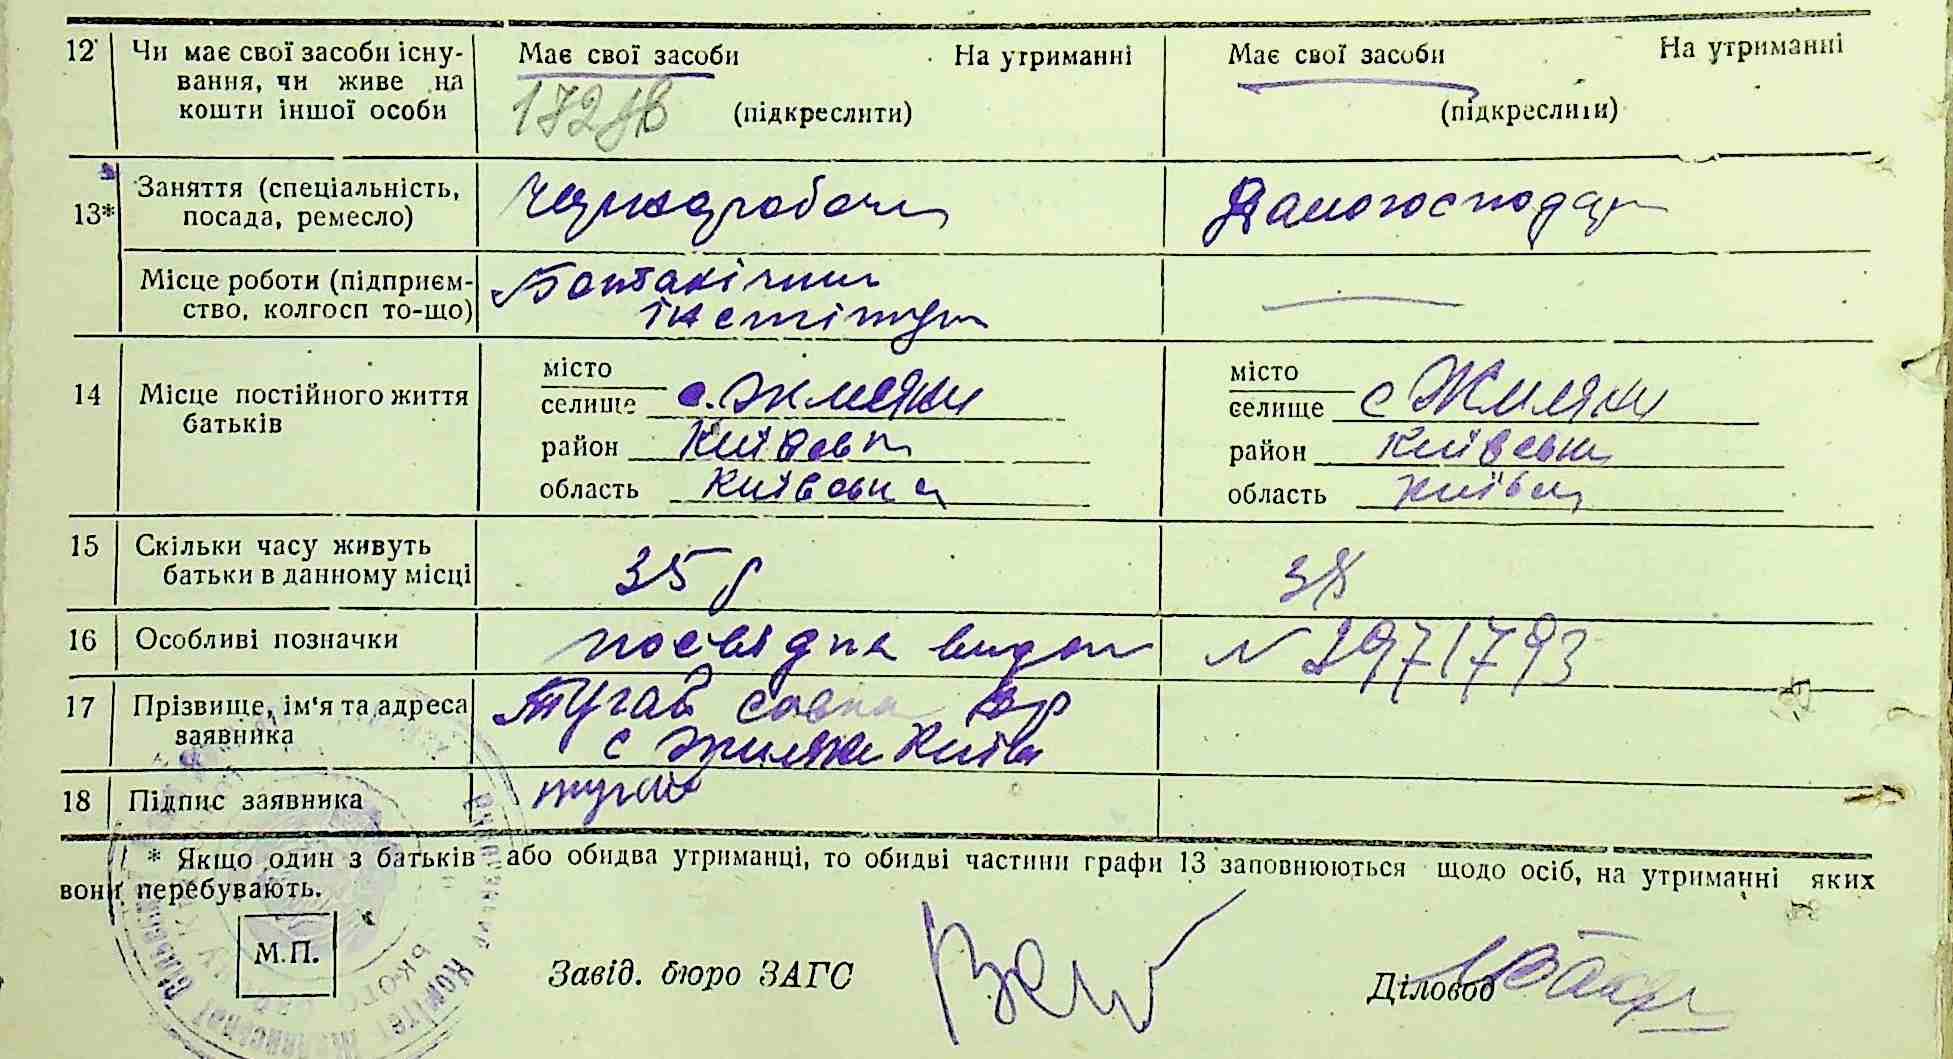 12 Чи має свої засоби існу- Має свої засоби На утриманні Має свої засоби На утриманні
вання, чи живе на
кошти іншої особи (підкреслити) (підкреслити)
13* Заняття (спеціальність, Чорнороб Домогосподар
посада, ремесло)
Місце роботи (підприєм- Ботанічний
ство, колгосп то-що) інститут
місто місто
14 Місце постійного життя селище с. Жиляни селище с Жиляни
батьків
район Київськ район Київськ
область Київська область Київськ
15 Скільки часу живуть 35 р 38
батьки в данному місці
16 Особливі позначки посвідка видан N 2971793
17 Прізвище, ім'я та адреса Тугай
заявника с Жиляни Київ
18 Підпис заявника тугай
* Якщо один з батьків або обидва утриманці, то обидві частини графи 13 заповнюються щодо осіб, на утриманні яких
вони перебувають.
М.П. Завід. бюро ЗАГС Діловод